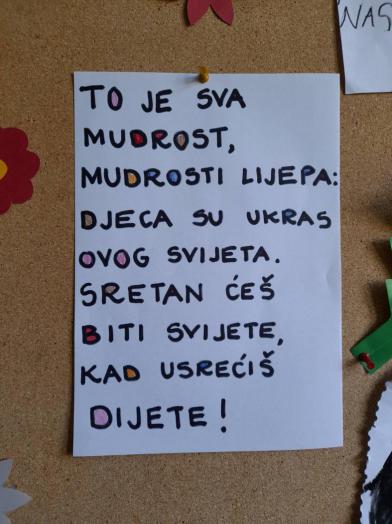 TO JE SVA
MUDROST,
MUDROSTI LIJEPA:
DJECA SU UKRAS
OVOG SVIJETA.
SRETAN ĆEŠ
BITI SVIJETE,
KAD USREĆIŠ
DIJETE!